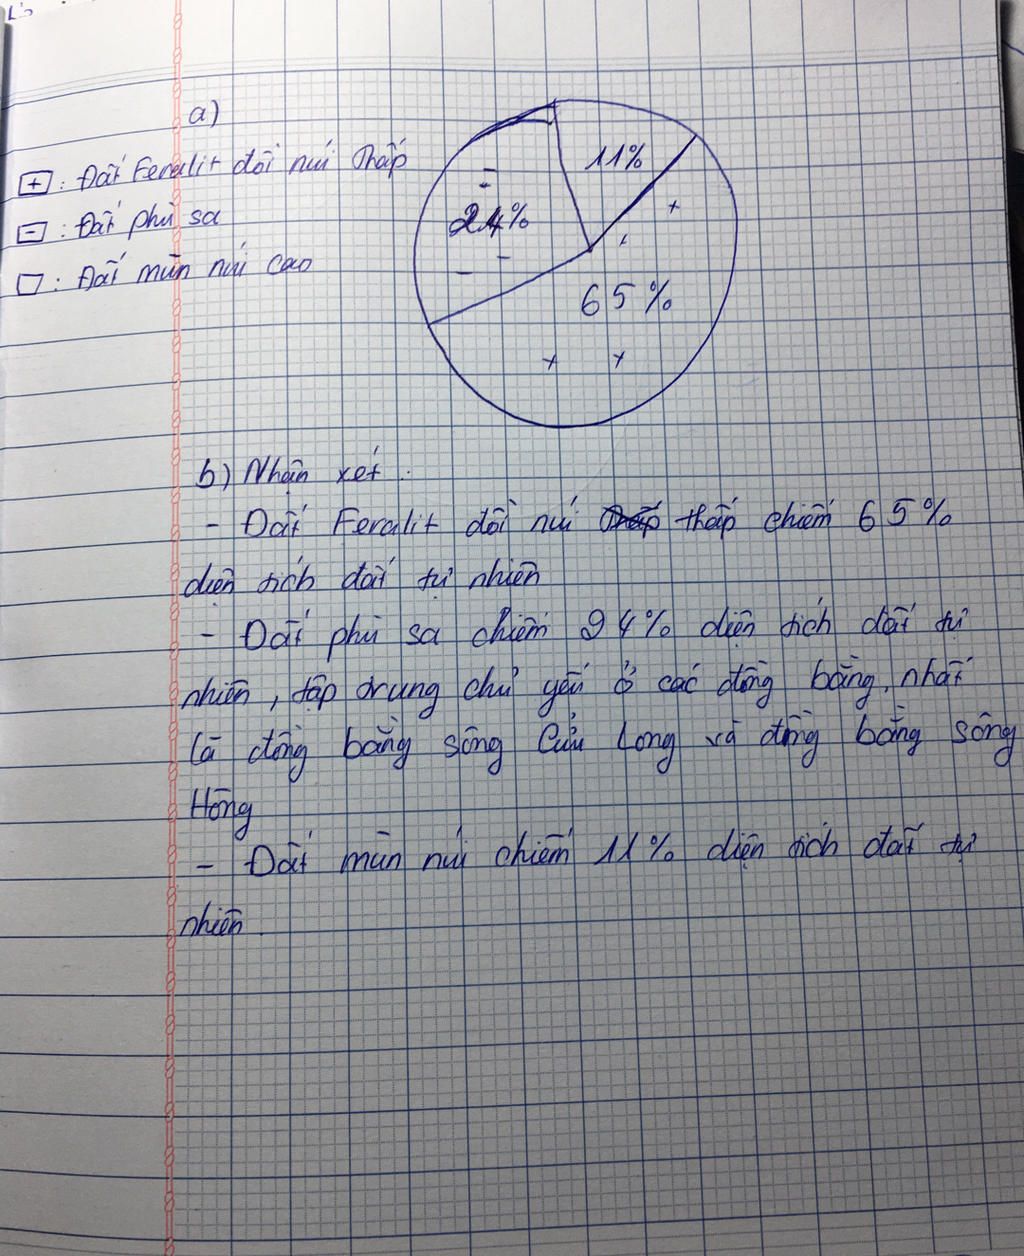 a)
+ : Đất Feralit đồi núi Thấp
- : Đất phù sa
: Đất mùn núi cao
11%
24%
65%
b) Nhận xét :
- Đất Feralit đồi núi thấp chiếm 65%
diện tích đất tự nhiên
- Đất phù sa chiếm 24% diện tích đất tự
nhiên, tập trung chủ yếu ở các đồng bằng, nhất
là đồng bằng sông Cửu Long và đồng bằng sông
Hồng
- Đất mùn núi chiếm 11% diện tích đất tự
nhiên.